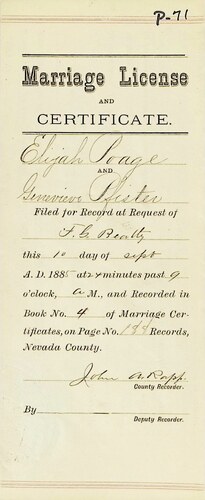 P-71
Marriage License
AND
CERTIFICATE.
Elijah Poage
AND
Genevieve Pfister
Filed for Record at Request of
F. G. Beatty
this 10 day of sept
A. D. 1885 at 24 minutes past 9
o'clock, a M., and Recorded in
Book No. 4 of Marriage Cer-
tificates, on Page No. 188 Records,
Nevada County.
John A Rapp.
County Recorder.
By
Deputy Recorder.